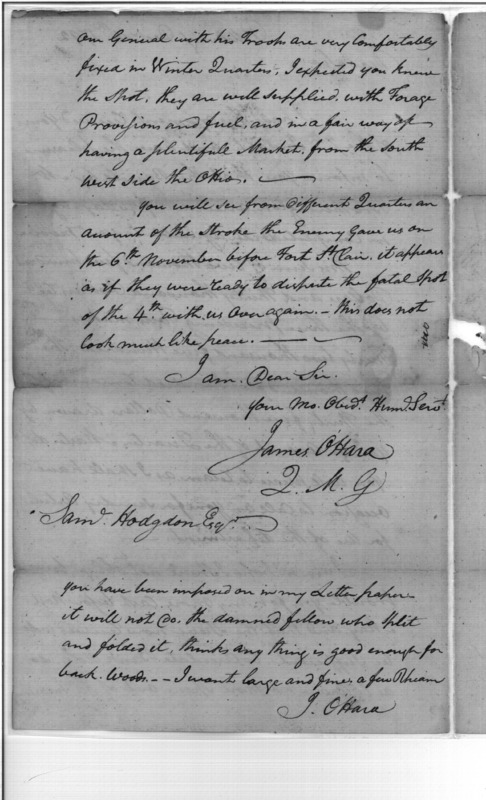 our General with his Troops are very Comfortably
fixed in Winter Quarters, I expected you knew
the Spot, they are well supplied with Forage
Provisions and fuel, and in a fair way of
having a plentifull Market, from the South
west side the Ohio. —
you will see from Different Quarters an
amount of the Stroke the Enemy Gave us on
the 6th November before Fort St Clair, it appears
as if they were ready to dispute the fatal Spot
of the 4th with us over again. – this does not
look much like peace. —
I am, Dear Sir.
your Mo. Obedt Humbl Servt
James O'Hara
Q. M. G
Saml Hodgdon Esqr
you have been imposed on in my Letter paper
it will not do. the damned fellow who Split
and folded it, thinks any thing is good enough for
back. Woods. – – I want large and fine, a few Rheam
J. O'Hara